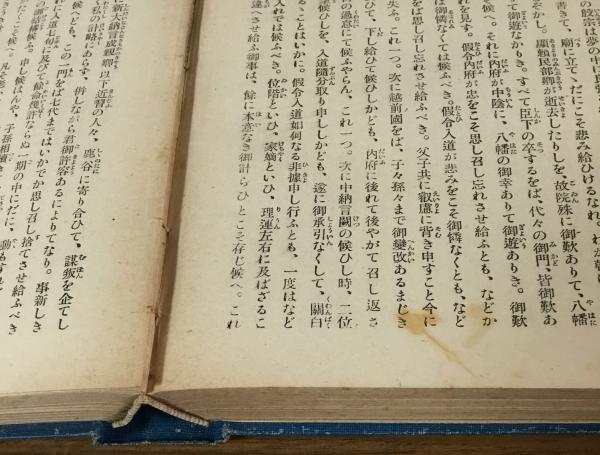 の殷宗は夢の中に良弼を
書きて、廟に立てゝだにこそ悲み給ひけるなれ。
ぞかし。顯賴民部卿が逝去したりしを、故院殊に御歎ありて、八幡
て御遊なかりき。すべて臣下の卒するをば、代々の御門、皆御歎あ
候へ。それに内府が中陰に、八幡の御幸ありて御遊ありき。御歎
れを見す。假令内府が忠をこそ思し召し忘れさせ給ふとも、などか
は御憐なくては候ふべき。假令入道が悲みをこそ御憐なくとも、など
をば思し召し忘れさせ給ふべき。父子共に叡慮に背き申すこと今に
失ふ。これ一つ。次に越前國をば、子々孫々まで御變改あるまじき
ひて、下し給ひて候ひしかども、内府に後れて後やがて召し返さ
の過怠にて候ふやらん、これ一つ。次に中納言闕の候ひし時、二位
候ひしを、入道隨分取り申しゝかども、遂に御承引なくして、關白
ることはいかに。假令入道如何なる非據申し行ふとも、一度はなど
入れでは候ふべき。位階といひ、家嫡といひ、理運左右に及ばざるこ
違へさせ給ふ御事は、餘に本意なき御計らひとこそ存じ候へ。これ
新大納言成親卿以下近習の人々、鹿谷に寄り合ひて、謀叛を企てし
私の計略にあらず、併しながら君御許容あるによりてなり。事新しき
候へども、この一門をば七代まではいかでか思し召し捨てさせ給ふべき
に入道七旬に及びて餘命幾許ならぬ一期の中にだに、動もすれ
御結構候ふ。申し候はんや、子孫相續き